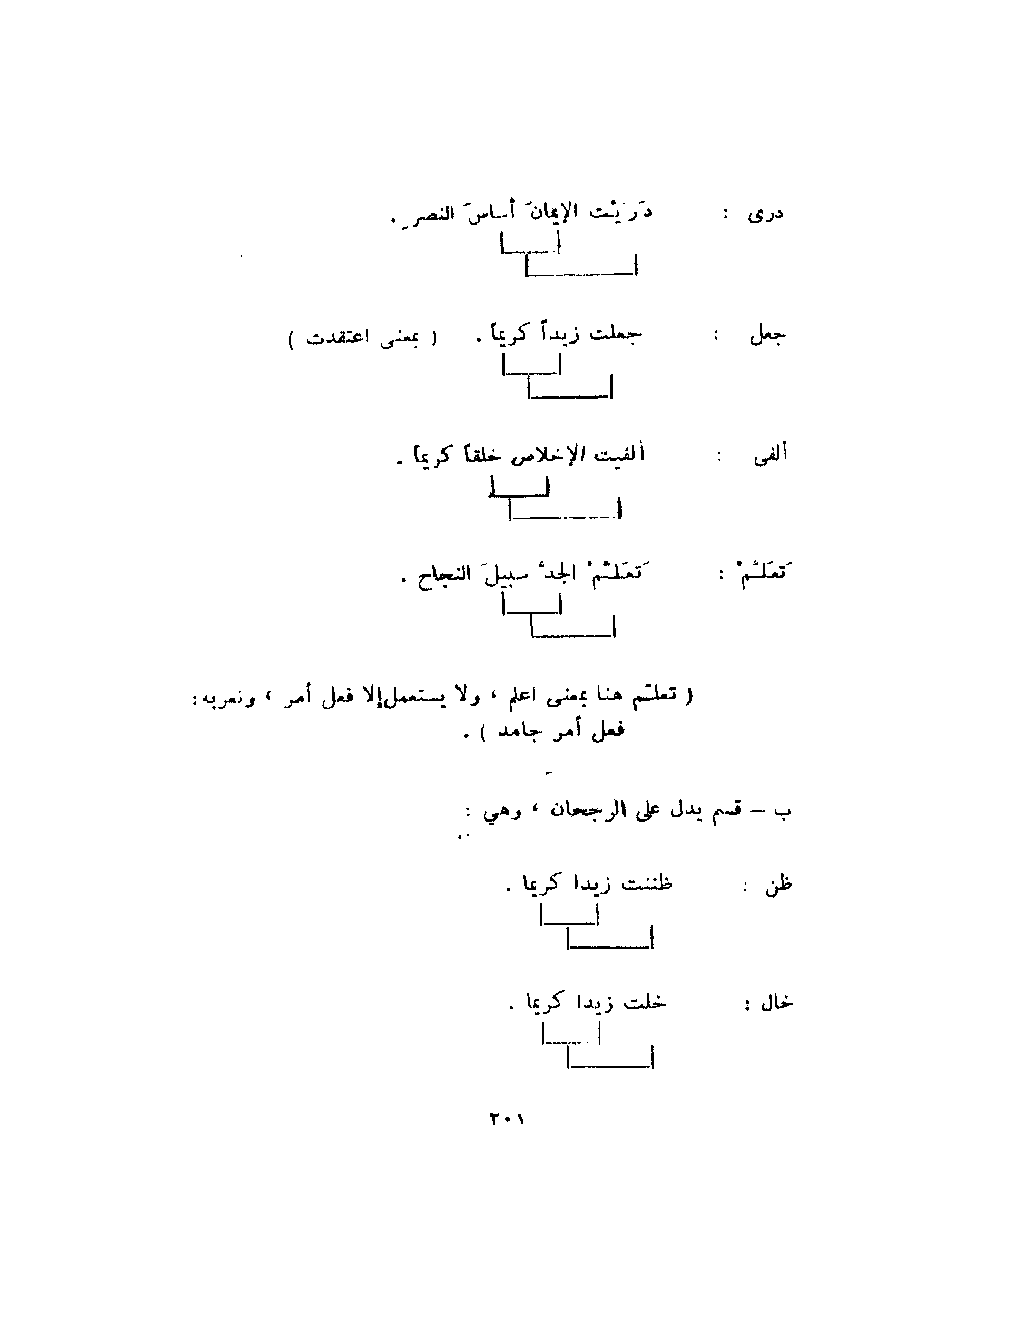 درى : دَرَيْت الإيمانَ أساسَ النصرِ .
جعل : جعلت زيداً كريماً . ( بمعنى اعتقدت )
ألفى : ألفيت الإخلاص خلقاً كريماً .
تَعَلَّمْ : تَعَلَّمْ الجدَّ سبيلَ النجاح .
( تعلَّم هنا بمعنى اعلم ، ولا يستعمل إلا فعل أمر ، ونعربه :
فعل أمر جامد ) .
ب – قسم يدل على الرجحان ، وهي :
ظن : ظننت زيدا كريما .
خال : خلت زيدا كريما .
٢٠١